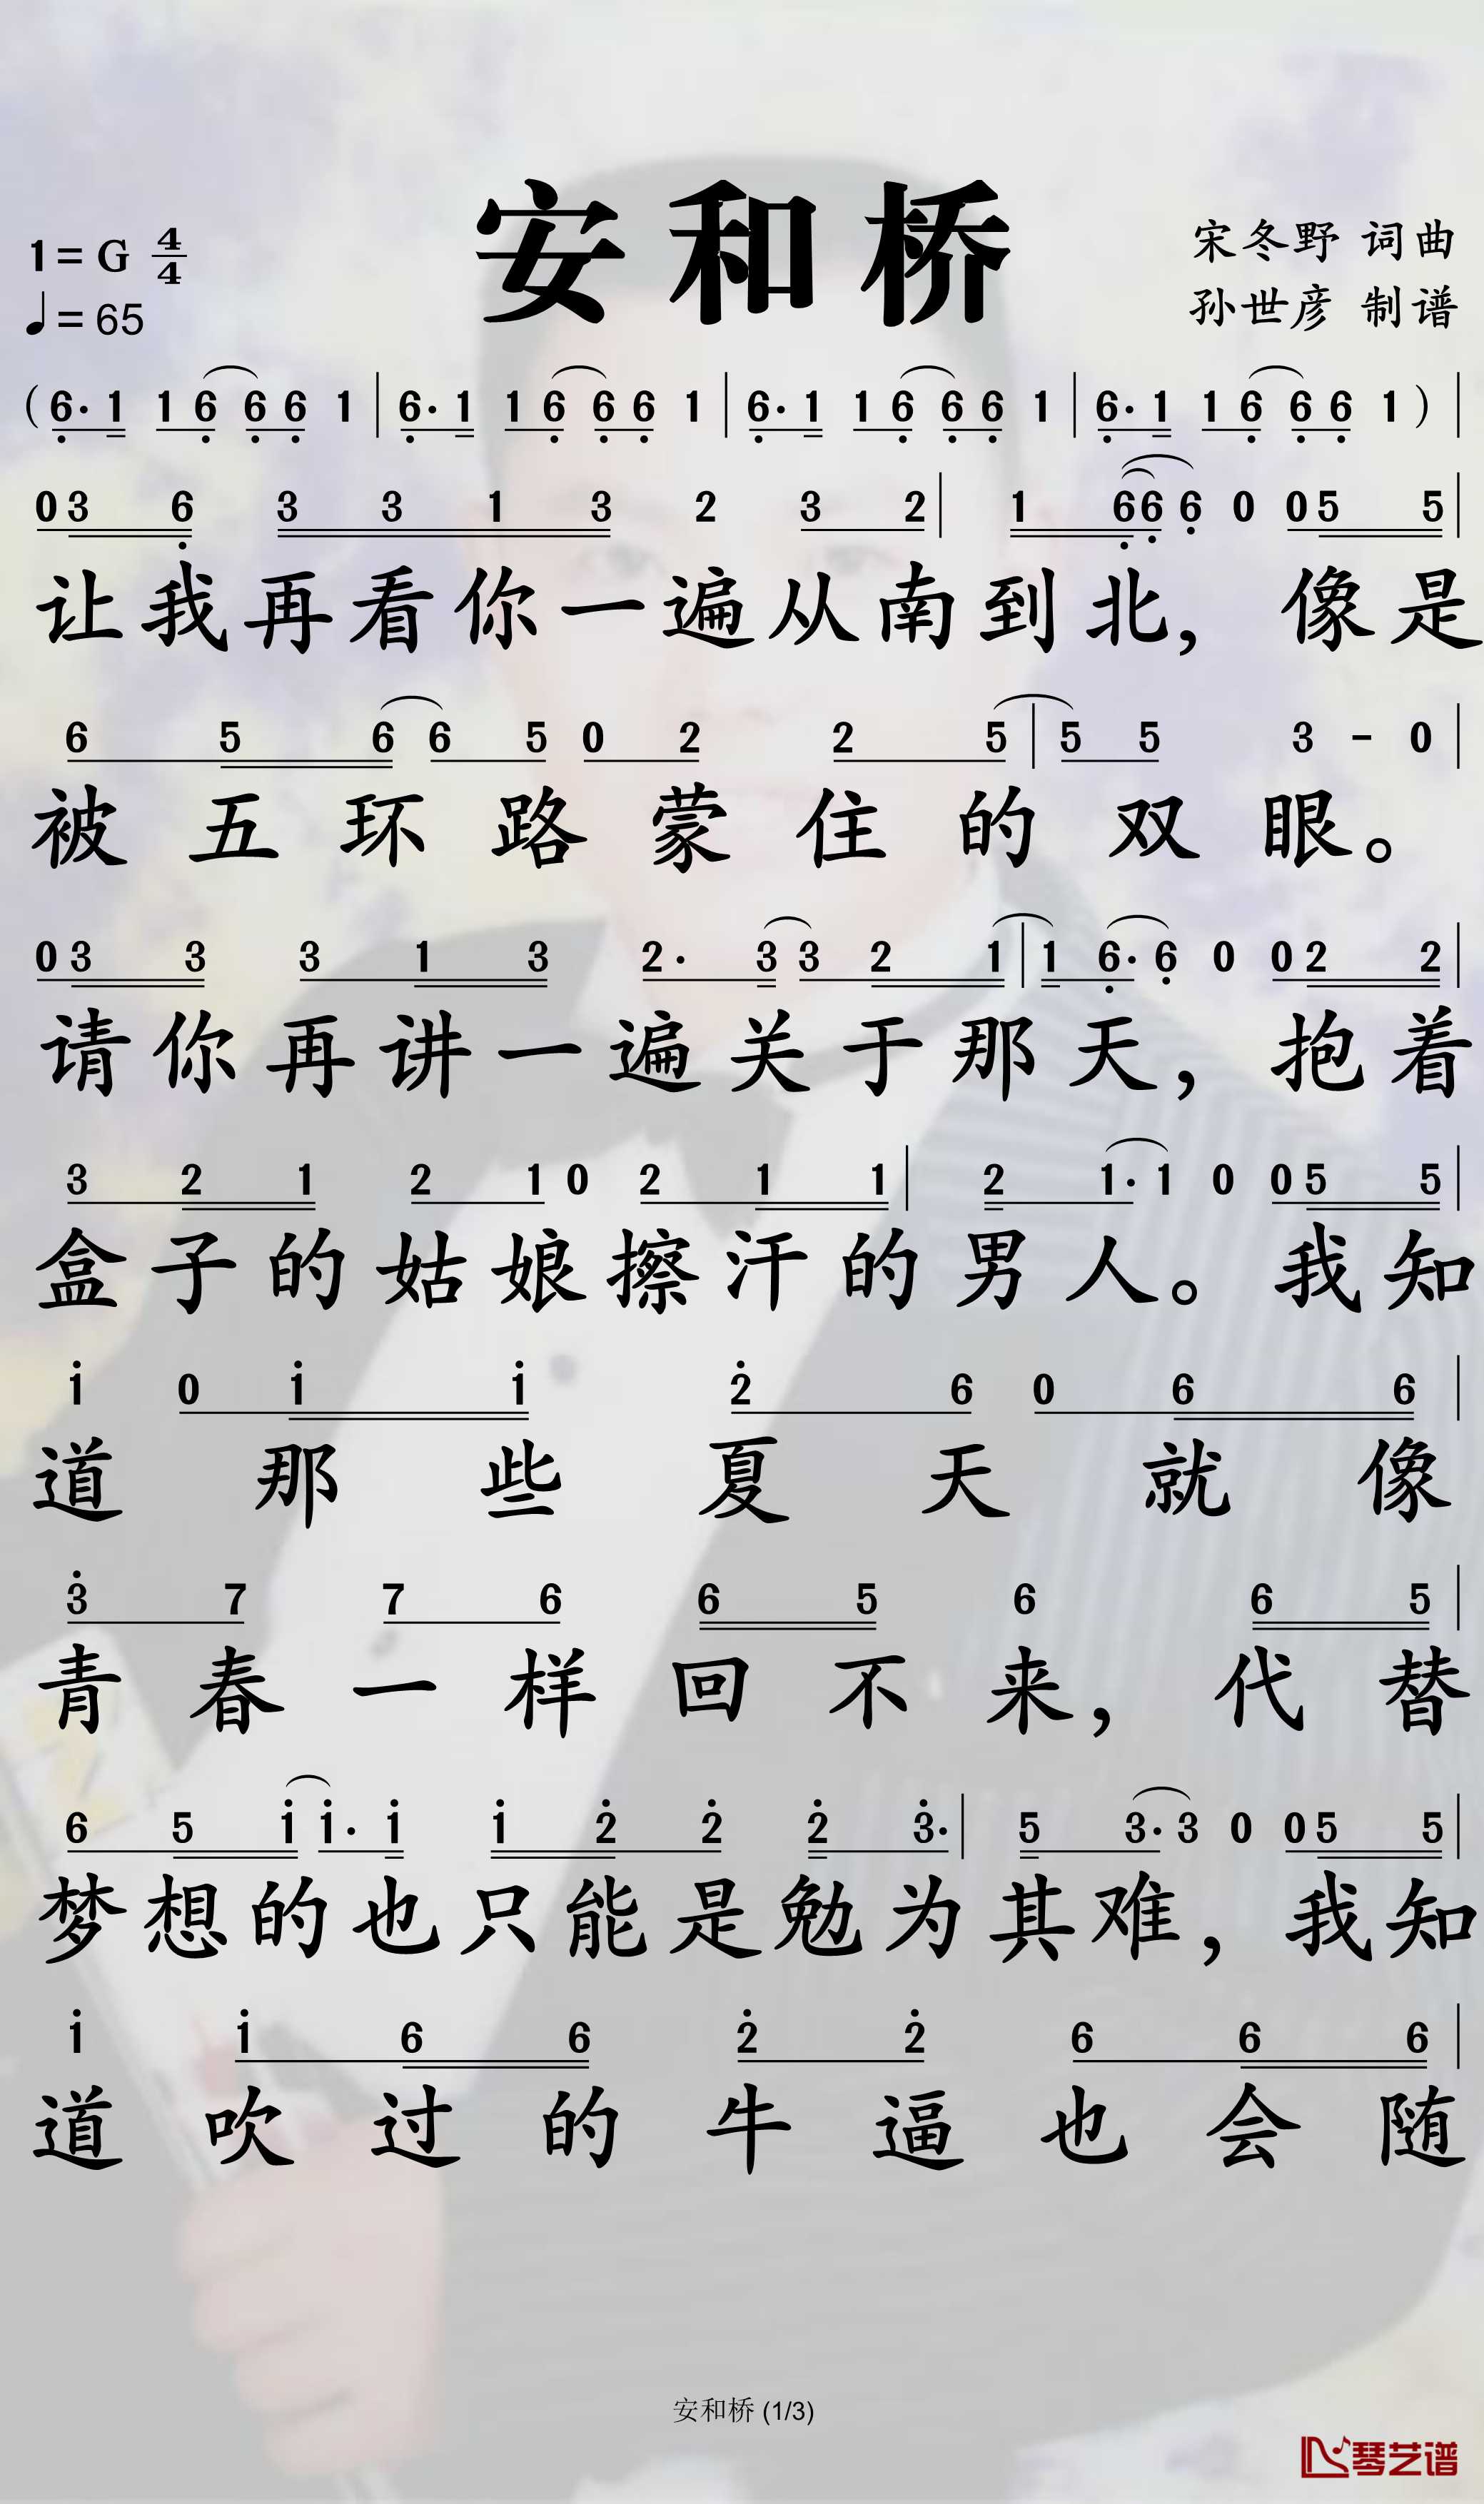 安和桥
1=G 4/4
♩=65
宋冬野 词曲
孙世彦 制谱
(6̣· 1 1 6̣ 6̣ 6̣ 1 | 6̣· 1 1 6̣ 6̣ 6̣ 1 | 6̣· 1 1 6̣ 6̣ 6̣ 1 | 6̣· 1 1 6̣ 6̣ 6̣ 1) |
0 3 6̣ 3 3 1 3 2 3 2 | 1 6̣ 6̣ 6̣ 0 0 5 5 |
让我再看你一遍从南到北,像是
6 5 6 6 5 0 2 2 5 | 5 5 3 - 0 |
被五环路蒙住的双眼。
0 3 3 3 1 3 2· 3 3 2 1 | 1 6̣· 6̣ 0 0 2 2 |
请你再讲一遍关于那天,抱着
3 2 1 2 1 0 2 1 1 | 2 1· 1 0 0 5 5 |
盒子的姑娘擦汗的男人。我知
1̇ 0 1̇ 1̇ 2̇ 6 0 6 6 |
道那些夏天就像
3̇ 7 7 6 6 5 6 6 5 |
青春一样回不来,代替
6 5 1̇ 1̇· 1̇ 1̇ 2̇ 2̇ 2̇ 3̇· | 5 3· 3 0 0 5 5 |
梦想的也只能是勉为其难,我知
1̇ 1̇ 6 6 2̇ 2̇ 6 6 6 |
道吹过的牛逼也会随
安和桥 (1/3)
琴艺谱